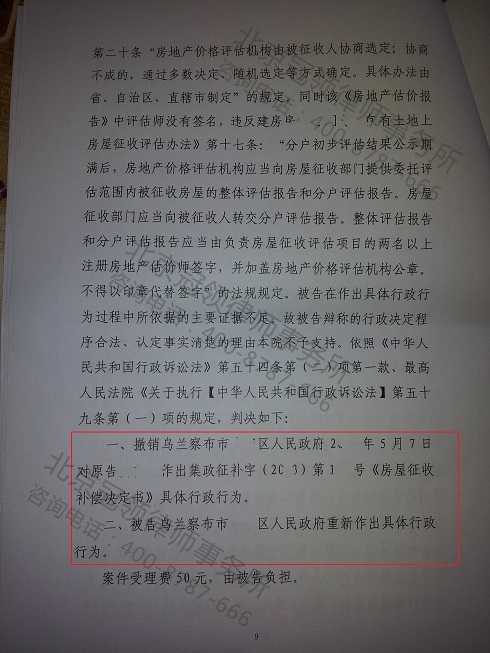 第二十条“房地产价格评估机构由被征收人协商选定；协商
不成的，通过多数决定、随机选定等方式确定。具体办法由
省、自治区、直辖市制定”的规定，同时该《房地产估价报
告》中评估师没有签名，违反建房 有土地上
房屋征收评估办法》第十七条：“分户初步评估结果公示期
满后，房地产价格评估机构应当向房屋征收部门提供委托评
估范围内被征收房屋的整体评估报告和分户评估报告。房屋
征收部门应当向被征收人转交分户评估报告。整体评估报告
和分户评估报告应当由负责房屋征收评估项目的两名以上
注册房地产估价师签字，并加盖房地产价格评估机构公章。
不得以印章代替签字”的法规规定。被告在作出具体行政行
为过程中所依据的主要证据不足、故被告辩称的行政决定程
序合法、认定事实清楚的理由本院不予支持。依照《中华人
民共和国行政诉讼法》第五十四条第（一）项第一款、最高
人民法院《关于执行【中华人民共和国行政诉讼法】第五十
九条第（一）项的规定，判决如下：
一、撤销乌兰察布市 区人民政府2 年5月7日
对原告 作出集政征补字（20 3）第1 号《房屋征收
补偿决定书》具体行政行为。
二、被告乌兰察布市 区人民政府重新作出具体行政
行为。
案件受理费50元，由被告负担。
9
北京冠领律师事务所
咨询电话：400-8787-666
北京冠领律师事务所
咨询电话：400-8787-666
北京冠领律师事务所
咨询电话：400-8787-666